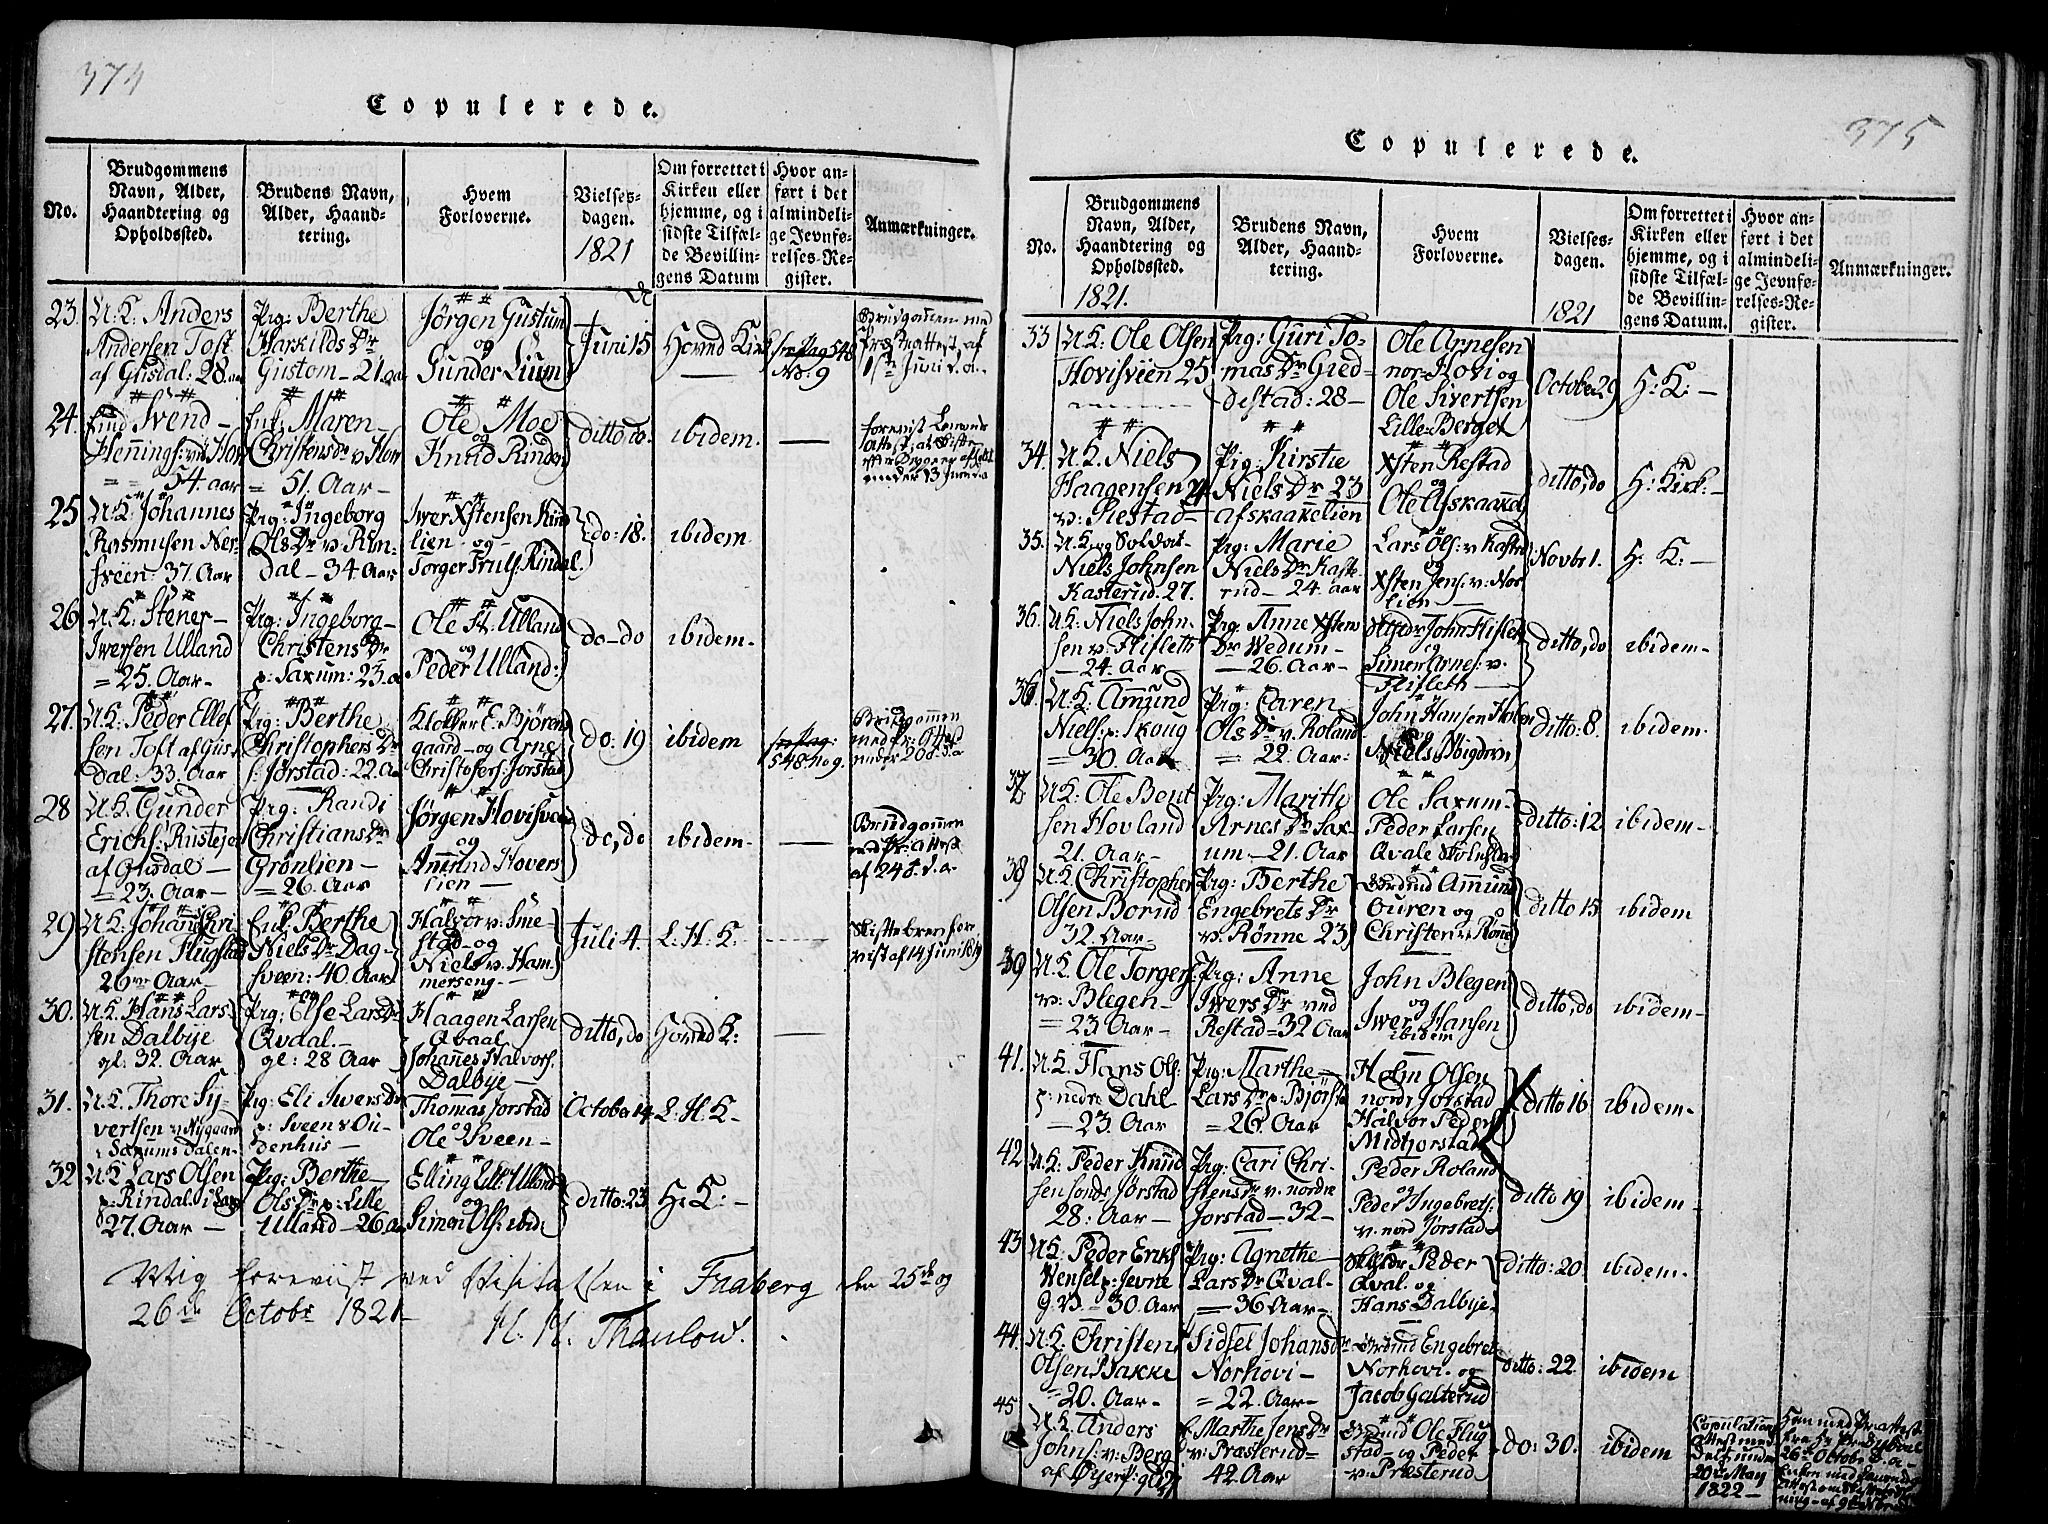 374
Copulerede.
No.
Brudgommens
Navn, Alder,
Haandtering og
Opholdssted.
Brudens Navn,
Alder, Haand-
tering.
Hvem
Forloverne.
Vielses-
dagen.
1821
Om forrettet i
Kirken eller
hjemme, og i
sidste Tilfæl-
de Bevillin-
gens Datum
Hvor an-
ført i det
almindeli-
ge Jevnfø-
relses-Re-
gister.
Anmærkninger.
23.
U: K: Anders
Andersen Toft
af Gusdal: 28
Pig: Berthe
Harkilds Dr
Gustom - 21
Jørgen Gustum
og
Gunder Lium
Juni 15
Hoved Kirk
pag 548
No. 9
Brudgommen med
Præsteattest af
1ste Juni d. a.
24.
Svend
Hennings:
54. aar
Enk: Maren
Christensdr v Hov
= 51. Aar -
Ole Moe
og
Knud Rinden
ditto, do.
ibidem.
25
U: K: Johannes
Rasmusen Ner-
sveen: 37. Aar
Pig: Ingeborg
Ols Dr v: Rin-
dal - 34 Aar
Iwer Xstensen
lien - og -
Torger Truls: Rindal.
do: 18.
ibidem
26
U: K: Stener
Iwersen Ulland
= 25. Aar -
Pig: Ingeborg
Christens Dr
p: Saxum: 23. a
Ole St: Ulland
og
Peder Ulland:
do - do
ibidem -
27.
U: K: Peder Ellef
sen Toft af Gus
dal: 33. Aar
Pig: Berthe
Christophers Dr
s: Jørstad: 22. Aa
Klokker E. Bjørens
gaard - og Arne
Christofers: Jorstad
do: 19
ibidem
pag:
548 No 9.
Brudgommen
med Pr: Attest
under 20 d. a
28
U. K. Gunder
Erichs:
af Gusdal -
= 23. Aar -
Pig: Randi
Christians Dr
Grønlien -
= 26. Aar
Jørgen Hovisve
og
Amund Hovers
lien -
do, do
ibidem -
Brudgommen
med Pr: Attest
af 24 d. a
29
U: K: Johan Chri
stensen Flugstad
26 Aar -
Enk. Berthe
Niels Dr Dag-
sveen: 40 Aar
Halvor v: Sme
stad - og
Niels v. Ham
merseng -
Juli 4.
L. H. K:
Skiftebrev fore
vist af 14 Juni 1819
30.
U. K. Hans Lars
sen Dalbÿe
gl: 32. Aar
Pig: Else Lars Dr
Qvdal.
gl: 28 Aar
Haagen Larsen
Qvaal
Johannes Halvors:
Dalbÿe -
ditto, do
Hoved K:
31.
U. K. Thore Sÿ
vertsen v Nÿgaard
Saxumsdalen
Pig: Eli Iwers Dr
p: Sveen v Ou
denhus -
Thomas Jorstad
og
Ole Sveen -
October 14
L. H. K -
32
U K Lars Olsen
p: Rindal i
27. Aar -
Pig: Berthe
Ols Dr p: Lille
Ulland - 26. a
Elling Lill: Ulland
og
Simen Ols: ibid:
ditto: 23
H: K: -
Mig foreviist ved Visitatsen i Faaberg den 25de og
26de Octobr 1821
H. H. Thaulow.
375
Copulerede.
No.
Brudgommens
Navn, Alder,
Haandtering og
Opholdssted.
1821.
Brudens Navn,
Alder, Haand-
tering.
Hvem
Forloverne.
Vielses-
dagen.
1821
Om forrettet i
Kirken eller
hjemme, og i
sidste Tilfæl-
de Bevillin-
gens Datum.
Hvor an-
ført i det
almindeli-
ge Jevnfø-
relses-Re-
gister.
Anmærkninger.
33
U K: Ole Olsen
Hovisvéen 25
Pig: Guri To-
mas Dr Gied-
destad: 28 -
Ole Arnesen
nor-Hovi og
Ole Sivertsen
Lille-Berget
October 29
H: K: -
34.
U K. Niels
Haagensen 24
v: Restad -
Pig: Kirstie
Niels Dr 23
afskaakelien
Xsten Restad
og
Ole Afskaakel
ditto, do
H: Kirk: -
35.
U. K. og Soldat
Niels Johnsen
Kasterud. 27.
Pig: Marie
Niels Dr Kaste-
rud - 24. aar
Lars Ols: v: Kastru
og
Xsten Jens: v: Nor
lien -
Novbr 1.
H: K: -
36.
U: K: Niels John-
sen v: Flisleth
- 24. Aar -
Pig: Anne Xsten
Dr Wedum -
- 26. Aar -
John Flisleth
og
Simen Arnes: v.
Flisleth -
ditto, do
ibidem -
36
U. K: Amund
Niels: p: Skoug
= 30. Aar
Pig: Caren
Ols Dr v: Roland
= 22. Aar:
John Hansen Holen
og
Niels
ditto: 8.
ibidem
37
U. K: Ole Bent
sen Hovland
21. Aar -
Pig: Marithe
Arnes Dr Sax-
um - 21. Aar
Ole Saxum -
Peder Larsen
Qvale
ditto: 12
ibidem -
38
U. K. Christopher
Olsen Borud
32. Aar -
Pig: Berthe
Engebrets Dr
v: Rönne 23
Amund
Ouren og
Christen v: Rønne
ditto 15
ibidem
39
U. K. Ole Torgers:
v: Blegen -
= 23 Aar -
Pig: Anne
Iwers Dr ved
Restad = 32 Aar
John Blegen
og
Iwer Hansen
ibidem
ditto, do
ibidem -
41.
U: K: Hans Ols:
p: nedre Dahl
- 23. Aar
Pig: Marthe -
Lars Dr p: Bjørsta
= 26. Aar
Holm Olsen
nordr Jorstad
Halvor Peder
Midtjorstad
ditto 16
ibidem -
42
U: K: Peder Knud
sen sondr Jørstad
28: Aar -
Pig: Cari Chri-
stens Dr v. nordre
Jorstad - 32 -
Peder Roland
og
Peder Ingebrets:
v: nord Jørstad -
ditto 19
ibidem -
43
U: K: Peder Eriks
Wensel p: Jevne
G. V. = 30. Aar
Pig: Agnethe -
Lars Dr Qval-
= 36 Aar -
Peder
Qval. og
Hans Dalbÿe -
ditto: 20.
ibidem -
44.
U. K: Christen
Olsen Bakke
= 20. Aar -
Sidsel Johansdr
Norhovi -
= 22. Aar -
Engebret
Norhovi - og
Jacob Galterud
ditto: 22.
ibidem
45
U. K: Anders
Johns: v: Berg
af Øyer
E. Marthe Jens Dr
v: Præsterud -
42. Aar
Ole Flug
stad - og Peder
v: Præsterud -
do: 30.
ibidem
Copulations
Attest med
Delt under
20de May
1822 -